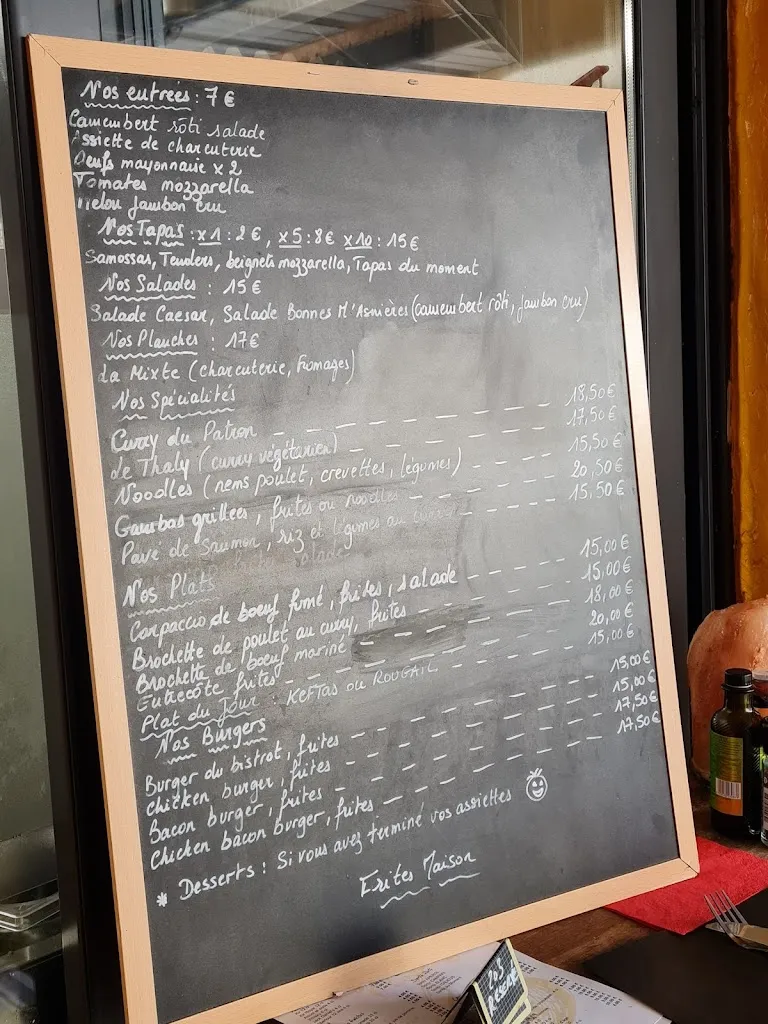 Nos entrées : 7 €
Camembert rôti salade
Assiette de charcuterie
Oeufs mayonnaise x 2
Tomates mozzarella
Melon jambon cru
Nos Tapas : x1 : 2 €, x5 : 8 € x10 : 15 €
Samossas, Tenders, beignets mozzarella, Tapas du moment
Nos Salades : 15 €
Salade Caesar, Salade Bonnes M'Asnières (camembert rôti, jambon cru)
Nos Planches : 17 €
La Mixte (charcuterie, fromages)
Nos Spécialités
Curry du Patron 18,50 €
Le Thaly (curry végétarien) 17,50 €
Noodles (nems poulet, crevettes, légumes) 15,50 €
Gambas grillées, frites ou noodles 20,50 €
Pavé de Saumon, riz et légumes au curry 15,50 €
salade
Nos Plats
Carpaccio de boeuf fumé, frites, salade 15,00 €
Brochette de poulet au curry, frites 15,00 €
Brochette de boeuf mariné 18,00 €
Entrecôte frites 20,00 €
Plat du Jour : KEFTAS ou ROUGAIL 15,00 €
Nos Burgers
Burger du bistrot, frites 15,00 €
Chicken burger, frites 15,00 €
Bacon burger, frites 17,50 €
Chicken bacon burger, frites 17,50 €
* Desserts : Si vous avez terminé vos assiettes
Frites Maison
203
RESERVÉ